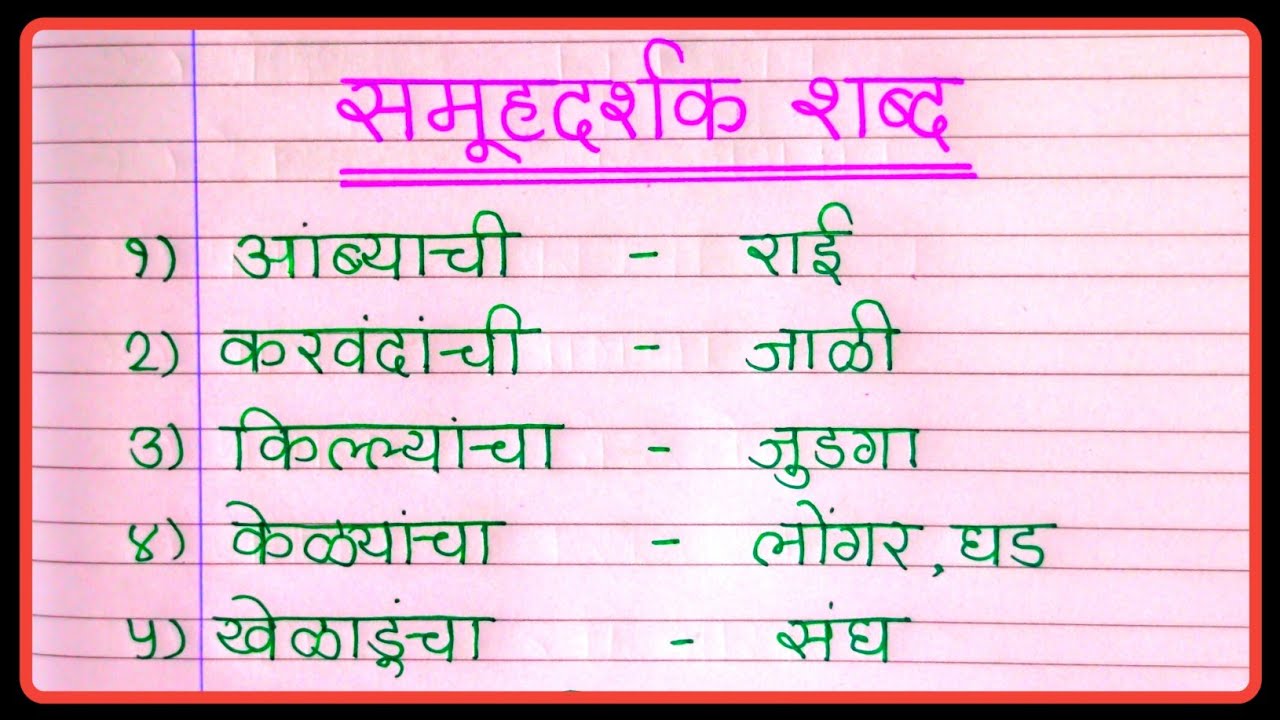 समूहदर्शक शब्द
१) आंब्याची - राई
२) करवंदांची - जाळी
३) किल्ल्यांचा - जुडगा
४) केळयांचा - लोंगर, घड
५) खेळाडूंचा - संघ